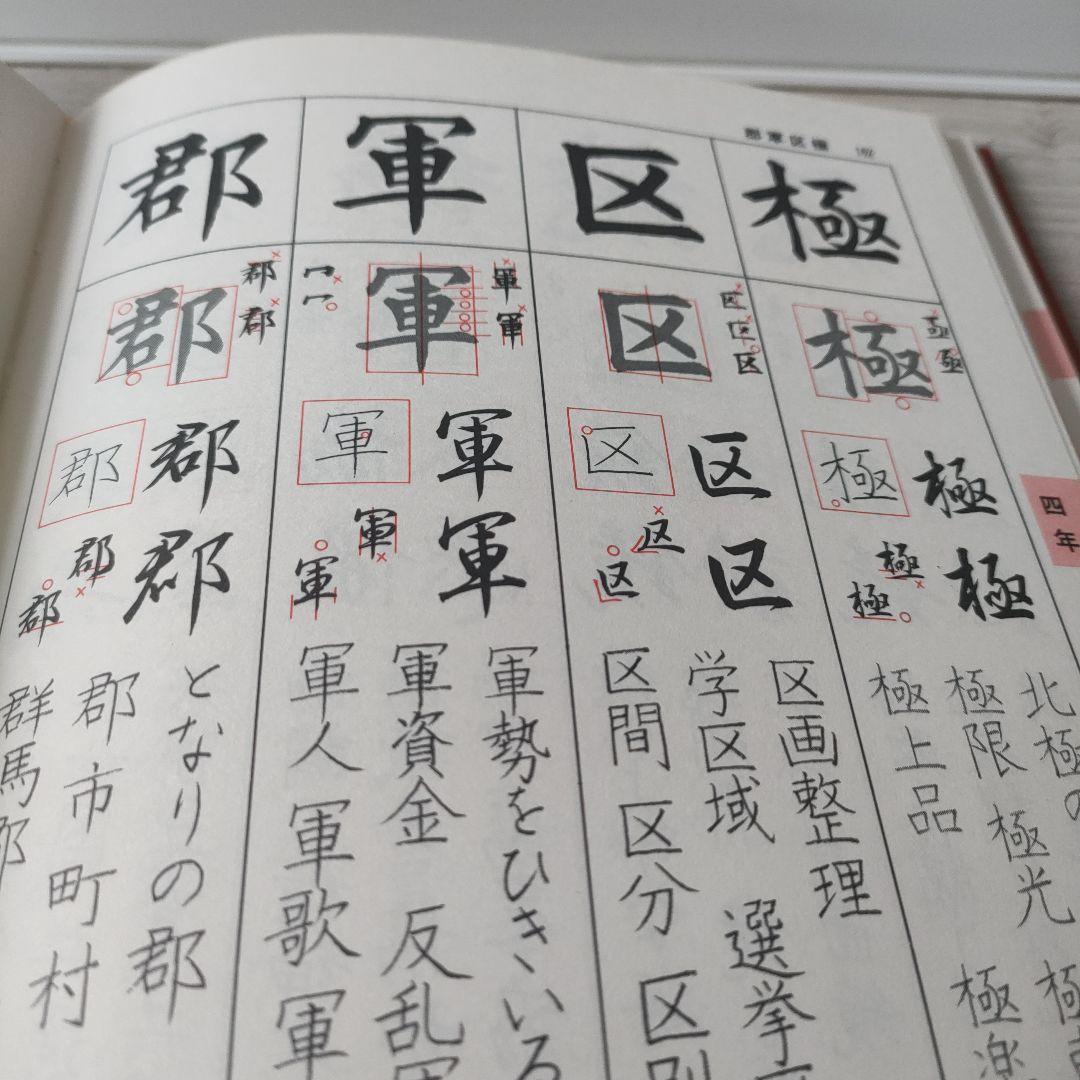 郡軍区極
四年
極
極
極
極
極
極
極
極
極
極
北極の
極限 極光
極上品 極楽
区
区
区
区
区
区
区
区
区
区
区画整理
学区域 選挙
区間 区分 区別
軍
軍
軍
軍
軍
軍
軍
軍
軍
冖
冖
軍勢をひきいる
軍資金 反乱軍
軍人 軍歌 軍
郡
郡
郡
郡
郡
郡
郡
郡
郡
となりの郡
郡市町村
群馬郡